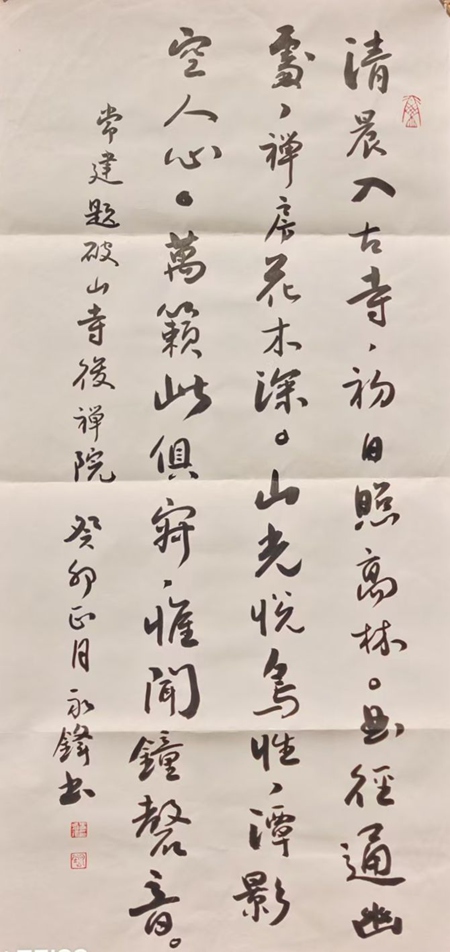 清晨入古寺，初日照高林。曲徑通幽
處，禅房花木深。山光悦鳥性，潭影
空人心。萬籟此俱寂，惟聞鐘磬音。
常建題破山寺後禅院 癸卯正月永鋒书